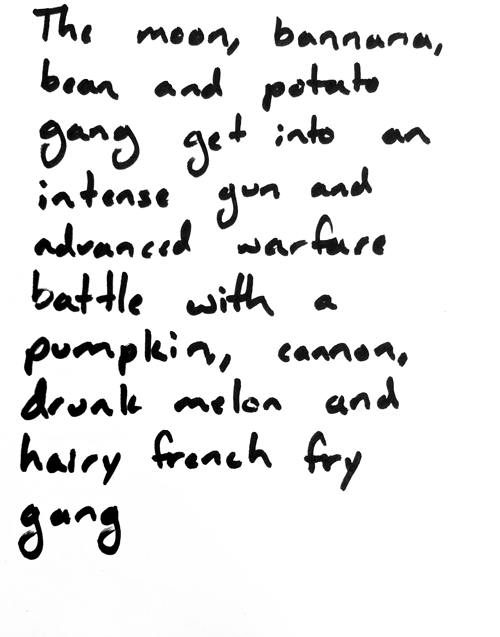 The moon, bannana,
bean and potato
gang get into an
intense gun and
advanced warfare
battle with a
pumpkin, cannon,
drunk melon and
hairy french fry
gang